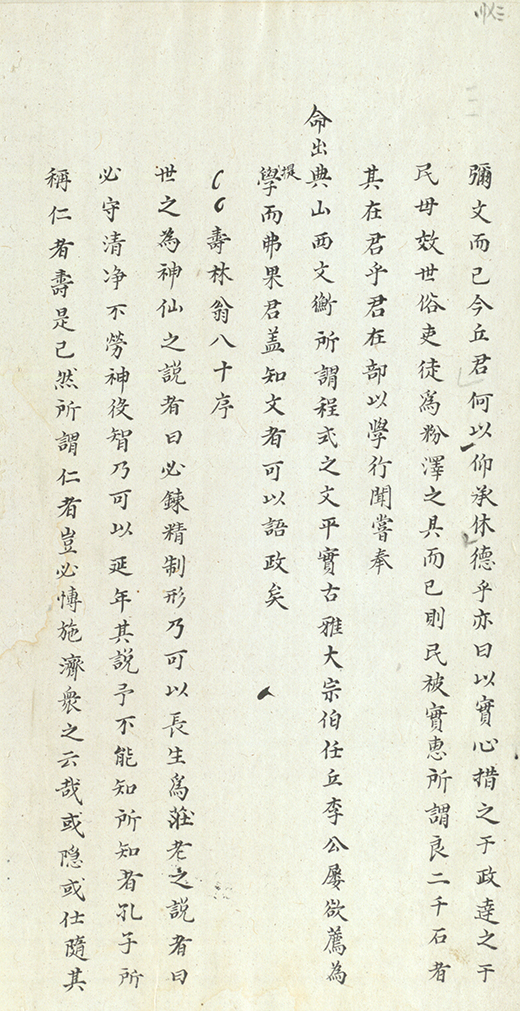 彌文而已今丘君何以仰承休德乎亦曰以實心措之于政達之于
民毋效世俗吏徒為粉澤之具而已則民被實惠所謂良二千石者
其在君乎君在部以學行聞嘗奉
命出典山西文衡所謂程式之文平實古雅大宗伯任丘李公屢欲薦為
提學而弗果君盖知文者可以語政矣
壽林翁八十序
世之為神仙之說者曰必鍊精制形乃可以長生為莊老之說者曰
必守清净不勞神役智乃可以延年其說予不能知所知者孔子所
稱仁者壽是已然所謂仁者豈必博施濟衆之云哉或隠或仕隨其